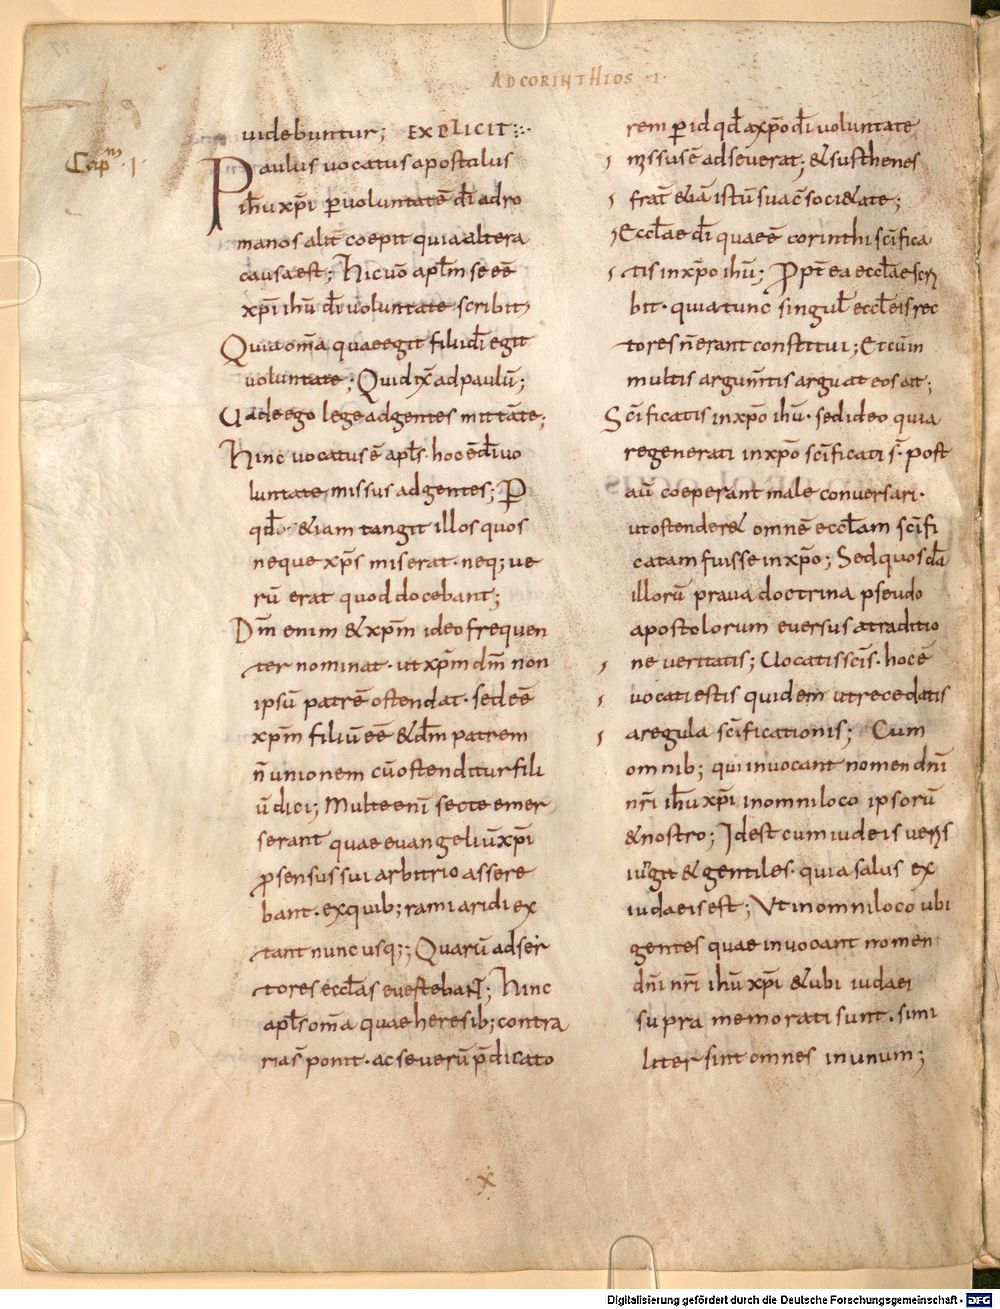 AD CORINTHIOS ·I·
uidebuntur; EXPLICIT
Cap̄ᵐ·I·
Paulus uocatus apostolus
ih̄u xp̄i ꝑ uoluntatē dī ad ro
manos alit̄ coepit quia altera
causa est; Hic uō apl̄m se eē
xp̄i ih̄u dī uoluntate scribit,
Quia om̄a quae egit filii dī egit
uoluntate; Quid ix̄ ad paulū;
Uade ego lege ad gentes mittā te;
Hinc uocatus ē apl̄s· hoc ē dī uo
luntate missus ad gentes; P
qd̄ &iam tangit illos quos
neque xp̄s miserat· neq; ue
rū erat quod docebant;
Dm̄ enim & xp̄m ideo frequen
ter nominat· ut xp̄m dm̄ non
ipsū patrē ostendat· sed eē
xp̄m filiū eē & dm̄ patrem
n̄ unionem cū ostenditur fili
ū dici; Multe eni secte emer
serant quae euangeliū xp̄i
ꝓ sensus sui arbitrio assere
bant· ex quib; rami aridi ex
tant nunc usq;; Quarū adser
tores eccl̄as euertebant; Hinc
apl̄s om̄a quae heresib; contra
ria s̄ ponit· ac se uerū p̄dicato
rem ꝑ id qd̄ a xp̄o dī uoluntate
mīssu sē adseuerat; & susthenes
frat̄ &iā istū sua c̄ soci&ate;
Eccl̄ae dī quae ē corinthi scīfica
tis in xp̄o ih̄u; Ꝓpt̄ ea eccl̄ae scri
bit· quia tunc singul̄ eccl̄eis rec
tores n̄ erant constituti; Et cum
multis argum̄tis arguat eos ait;
Scīficatis in xp̄o ih̄u· sed ideo quia
regenerati in xp̄o scīficati s̄· post
aū coeperant male conuersari·
ut ostender& omnē eccl̄am scīfi
catam fuisse in xp̄o; Sed quosdā
illorū praua doctrina pseudo
apostolorum euersus a traditio
ne ueritatis; Uocatis scīs· hoc ē
uocati estis quidem ut recedatis
a regula scīficationis; Cum
omnib; qui inuocant nomen dnī
nrī ih̄u xp̄i in omni loco ipsorū
& nostro; Idest cum iudeis ueris
iūgit & gentiles· quia salus ex
iudaeis est; Ut in omni loco ubi
gentes quae inuocant nomen
dnī nrī ih̄u xp̄i & ubi iudaei
supra memorati sunt· simi
liter sint omnes in unum;
x
Digitalisierung gefördert durch die Deutsche Forschungsgemeinschaft - DFG